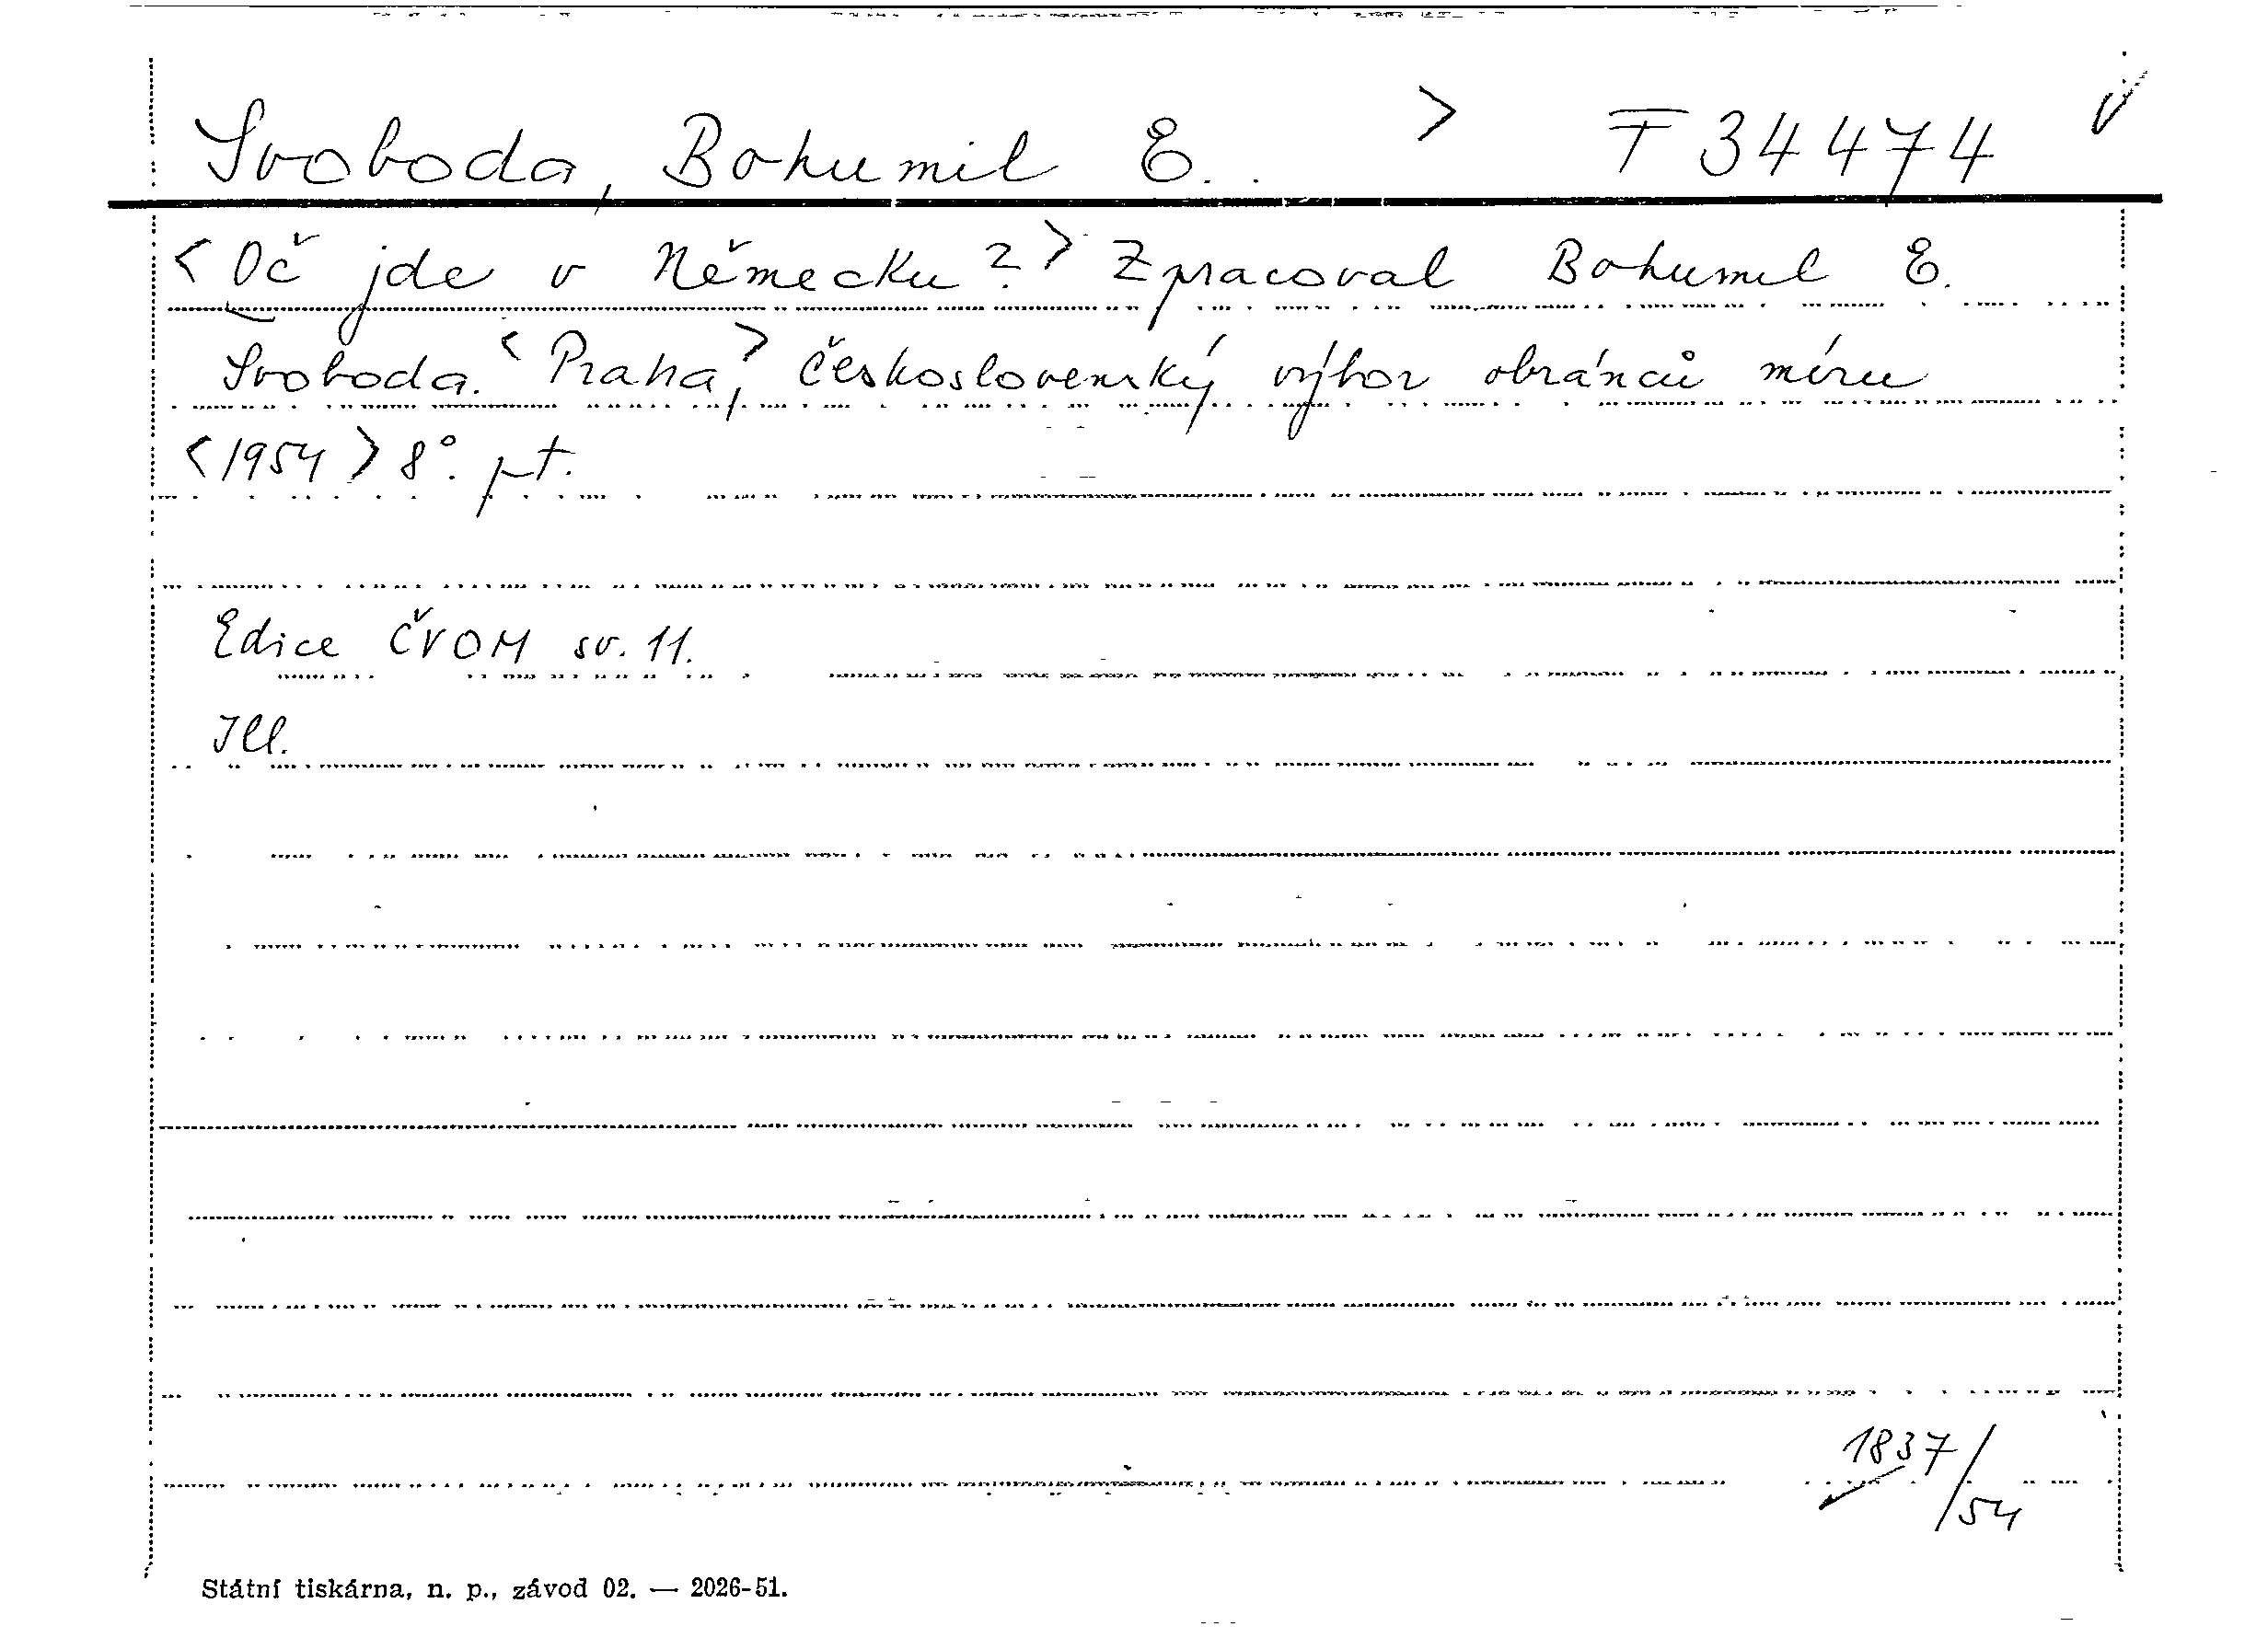 Svoboda, Bohumil E. > F 34474 √
<Oč jde v Německu?> Zpracoval Bohumil E.
Svoboda. <Praha,> Československý výbor obránců míru
<1954> 8°. pt.
Edice ČVOM sv. 11.
Ill.
1837/54
Státní tiskárna, n. p., závod 02. — 2026-51.